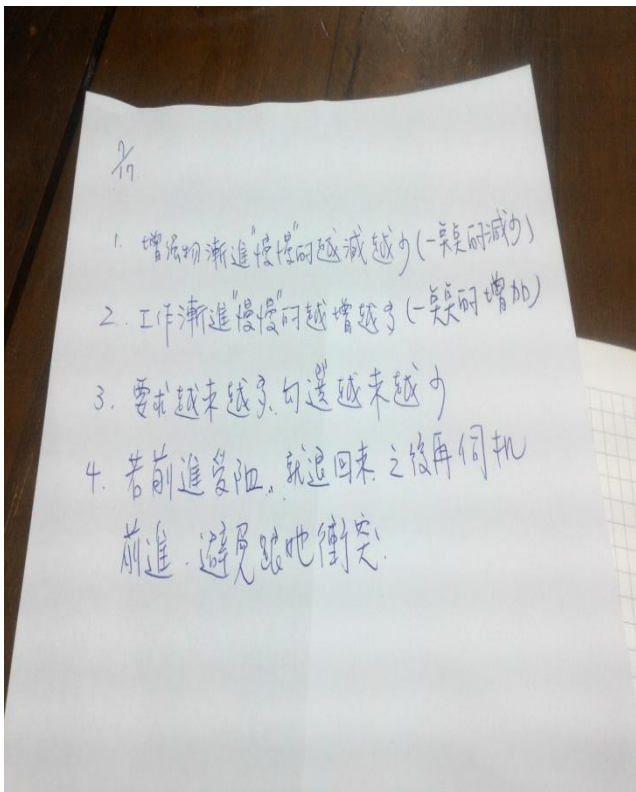 7/17
1. 增强物漸進"慢慢"的越減越少(一點點的減少)
2. 工作漸進"慢慢"的越增越多(一點點的增加)
3. 要求越来越多、勾選越来越少
4. 若前進受阻,就退回来,之後再伺机
前進.避免跟她衝突.